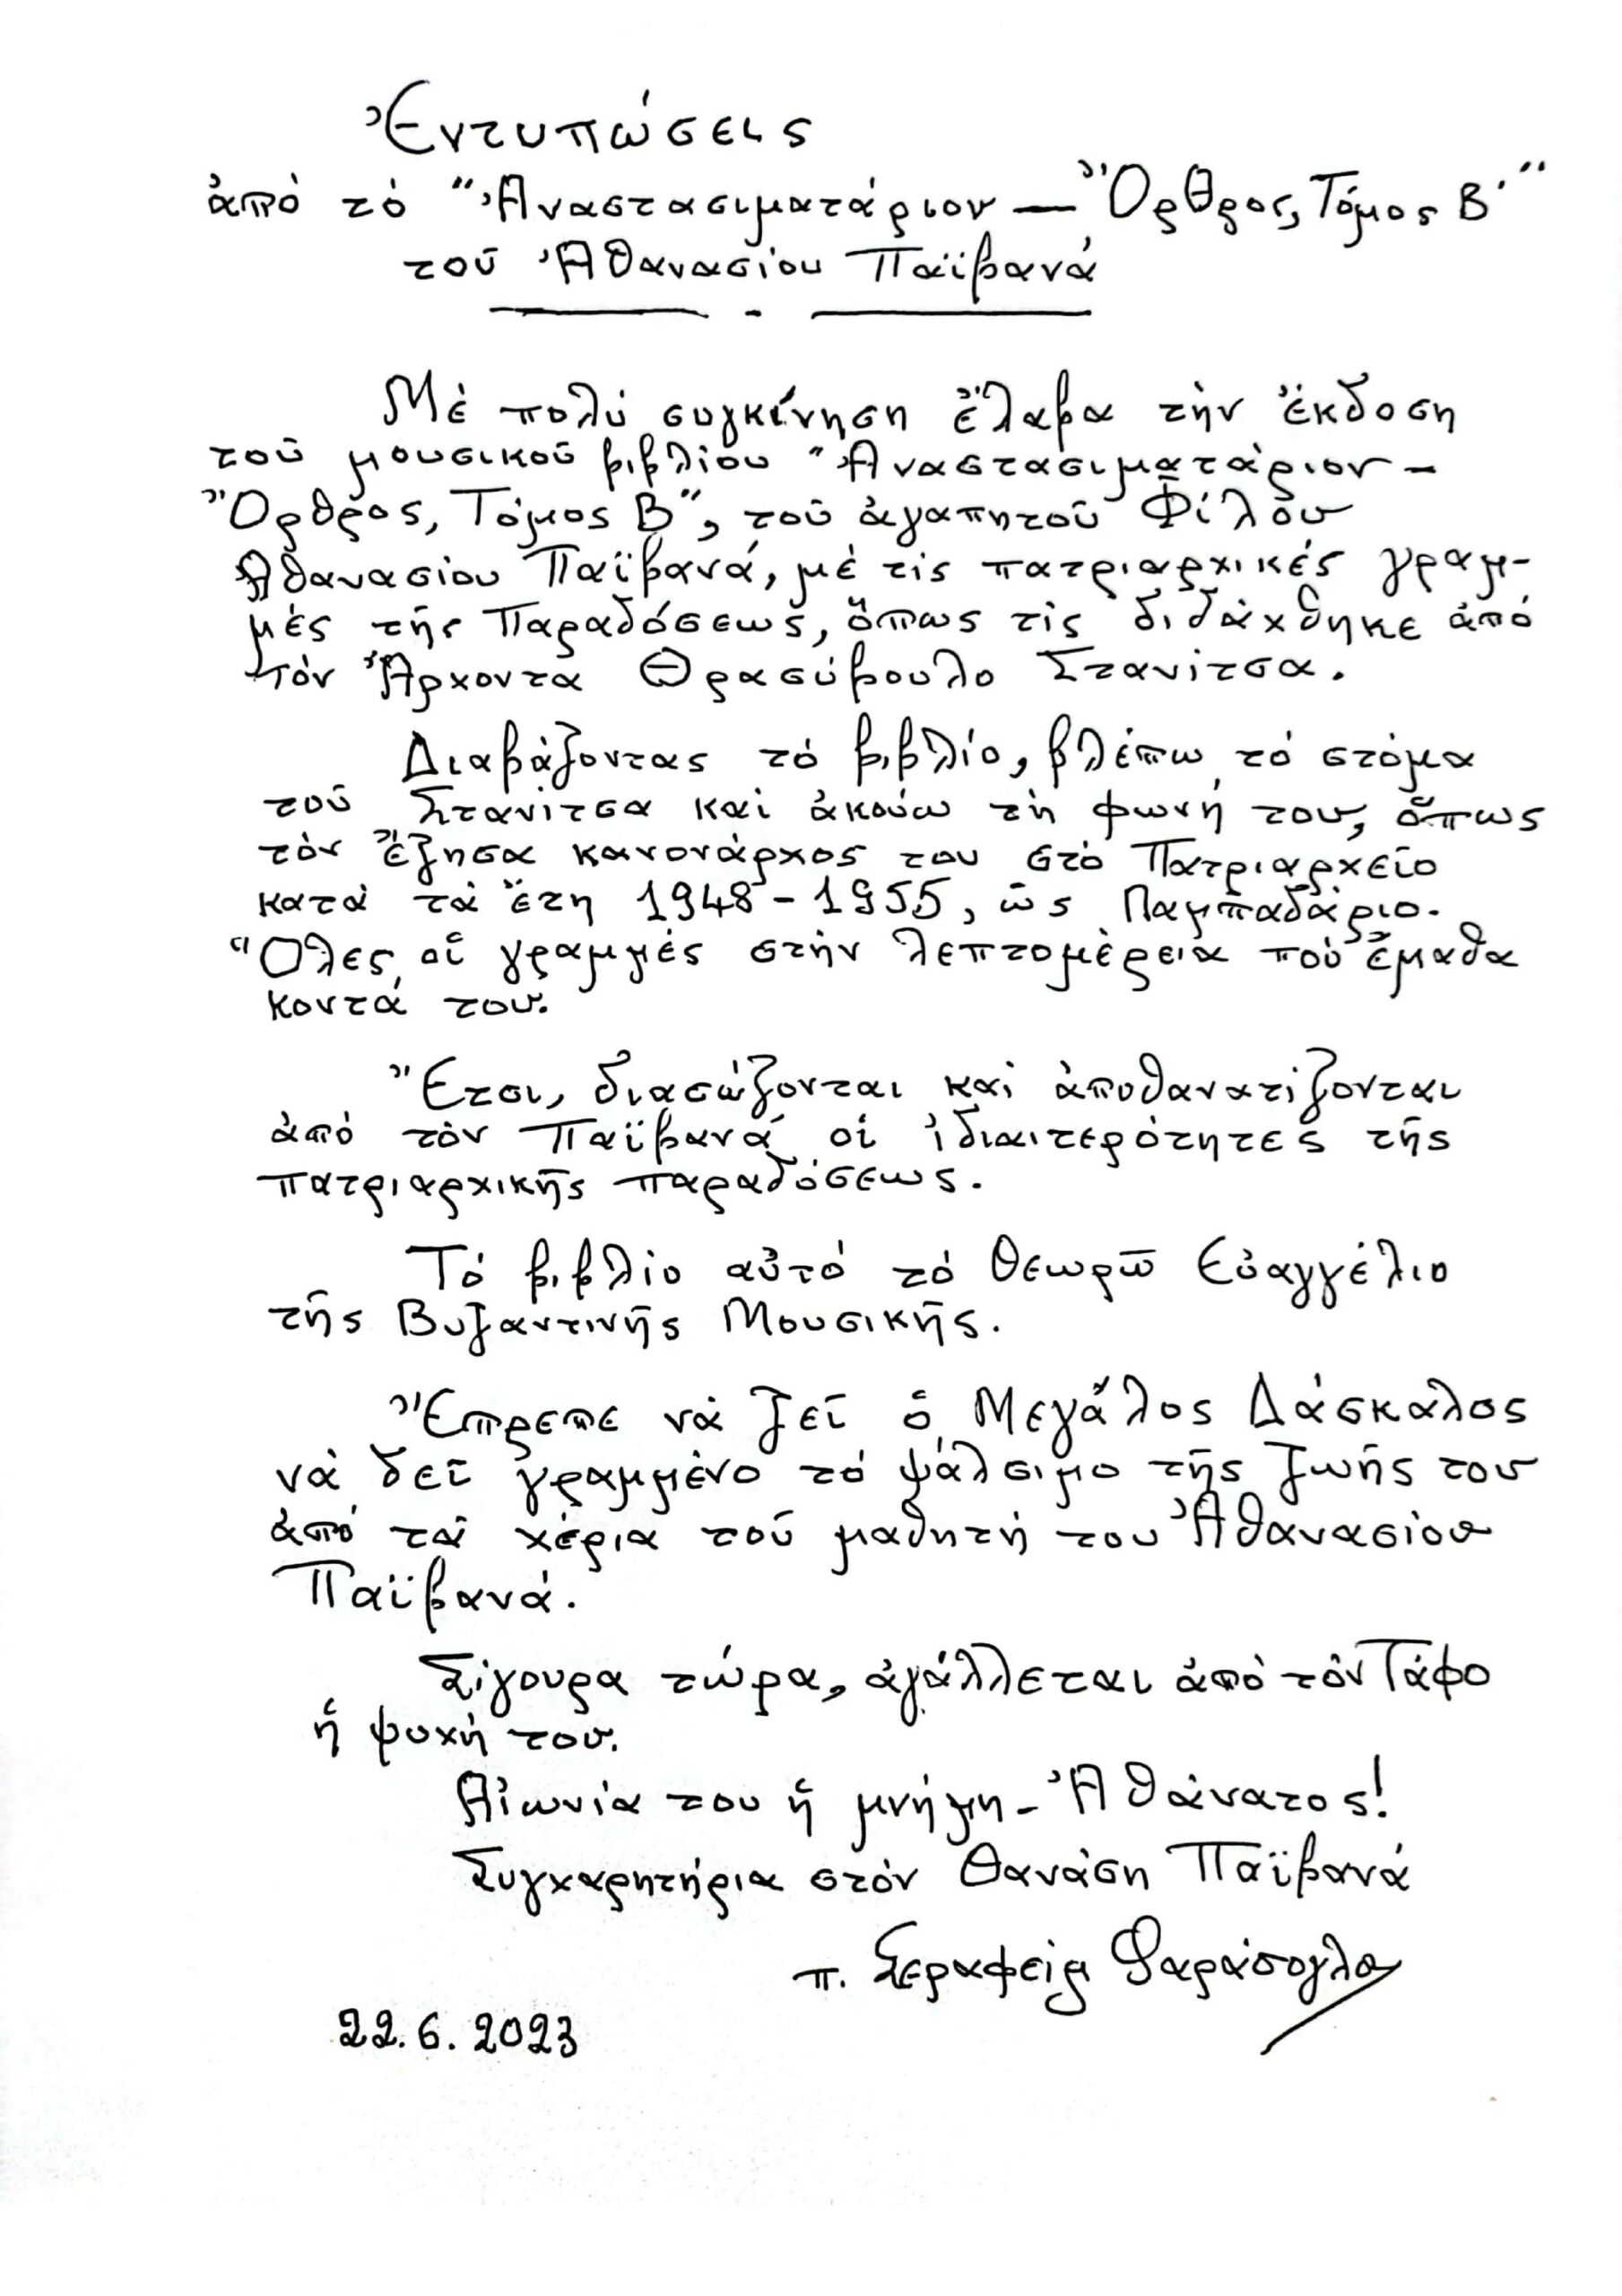 Ἐντυπώσεις
ἀπό τό "Ἀναστασιματάριον — Ὄρθρος, Τόμος Β΄"
τοῦ Ἀθανασίου Παϊβανά
Μέ πολύ συγκίνηση ἔλαβα τήν ἔκδοση
τοῦ μουσικοῦ βιβλίου "Ἀναστασιματάριον –
Ὄρθρος, Τόμος Β", τοῦ ἀγαπητοῦ Φίλου
Ἀθανασίου Παϊβανά, μέ τίς πατριαρχικές γραμ-
μές τῆς Παραδόσεως, ὅπως τίς διδάχθηκε ἀπό
τόν Ἄρχοντα Θρασύβουλο Στανίτσα.
Διαβάζοντας τό βιβλίο, βλέπω τό στόμα
τοῦ Στανίτσα καί ἀκούω τή φωνή του, ὅπως
τόν ἔζησα κανονάρχος του στό Πατριαρχεῖο
κατά τά ἔτη 1948 - 1955, ὡς Λαμπαδάριο.
Ὅλες οἱ γραμμές στήν λεπτομέρεια πού ἔμαθα
κοντά του.
Ἔτσι, διασώζονται καί ἀποθανατίζονται
ἀπό τόν Παϊβανά οἱ ἰδιαιτερότητες τῆς
πατριαρχικῆς παραδόσεως.
Τό βιβλίο αὐτό τό θεωρῶ Εὐαγγέλιο
τῆς Βυζαντινῆς Μουσικῆς.
Ἔπρεπε νά ζεῖ ὁ Μεγάλος Δάσκαλος
νά δεῖ γραμμένο τό ψάλσιμο τῆς ζωῆς του
ἀπό τά χέρια τοῦ μαθητή του Ἀθανασίου
Παϊβανά.
Σίγουρα τώρα, ἀγάλλεται ἀπό τόν Τάφο
ἡ ψυχή του.
Αἰωνία του ἡ μνήμη - Ἀθάνατος!
Συγχαρητήρια στόν Θανάση Παϊβανά
π. Σεραφείμ Φαράσογλου
22.6.2023